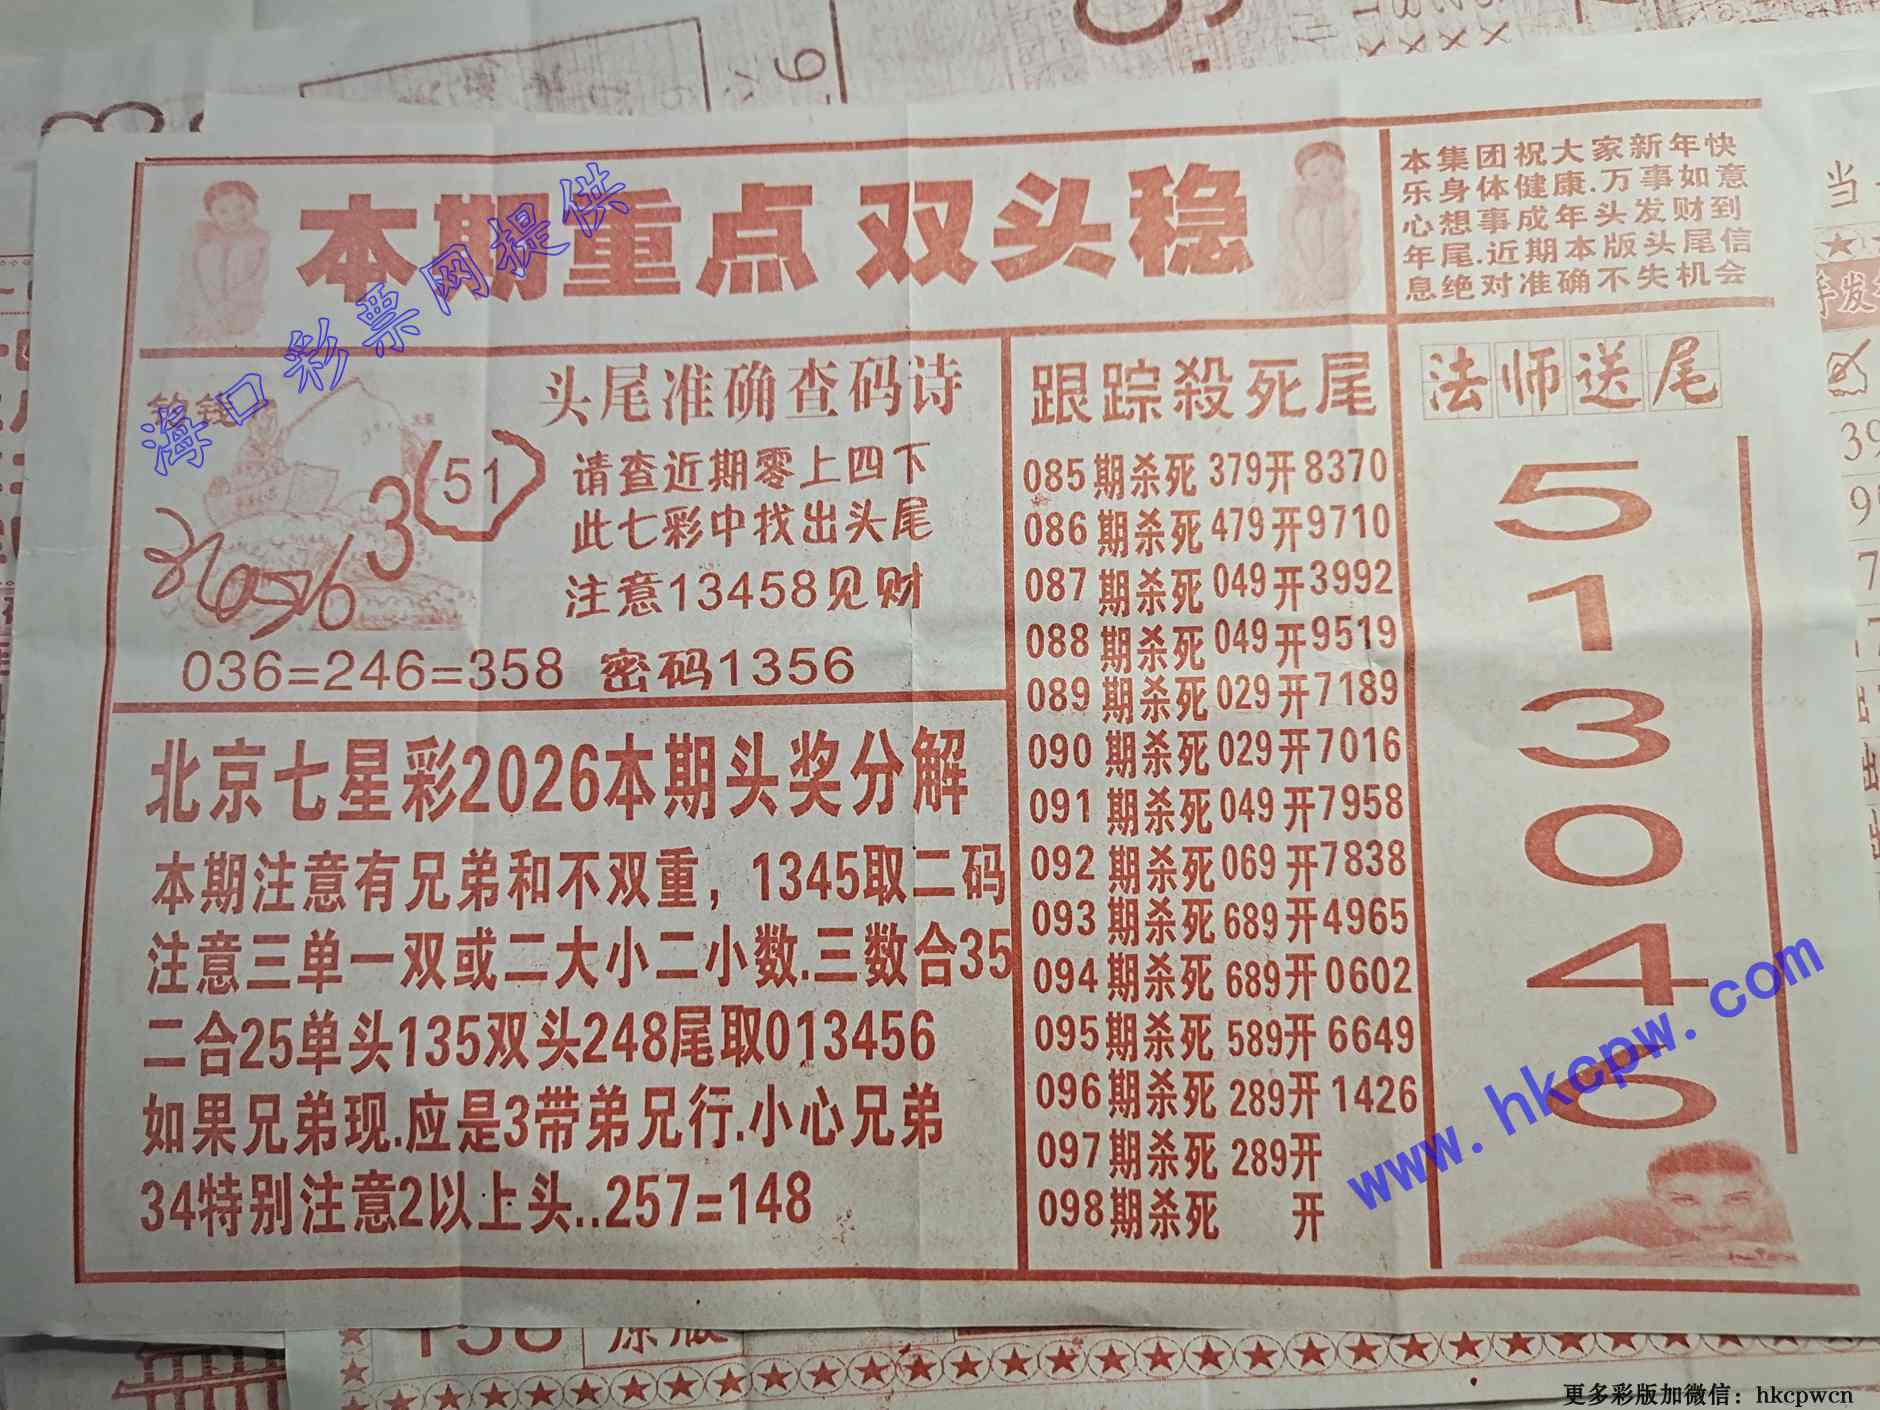 本期重点 双头稳
本集团祝大家新年快
乐身体健康.万事如意
心想事成年头发财到
年尾.近期本版头尾信
息绝对准确不失机会
海口彩票网提供
头尾准确查码诗
3(51)
请查近期零上四下
此七彩中找出头尾
注意13458见财
036=246=358 密码1356
北京七星彩2026本期头奖分解
本期注意有兄弟和不双重，1345取二码
注意三单一双或二大小二小数.三数合35
二合25单头135双头248尾取013456
如果兄弟现.应是3带弟兄行.小心兄弟
34特别注意2以上头..257=148
跟踪殺死尾
085期杀死379开8370
086期杀死479开9710
087期杀死049开3992
088期杀死049开9519
089期杀死029开7189
090期杀死029开7016
091期杀死049开7958
092期杀死069开7838
093期杀死689开4965
094期杀死689开0602
095期杀死589开6649
096期杀死289开1426
097期杀死289开
098期杀死 开
法师送尾
5
1
3
0
4
6
www.hkcpw.com
158 原版
更多彩版加微信：hkcpwcn